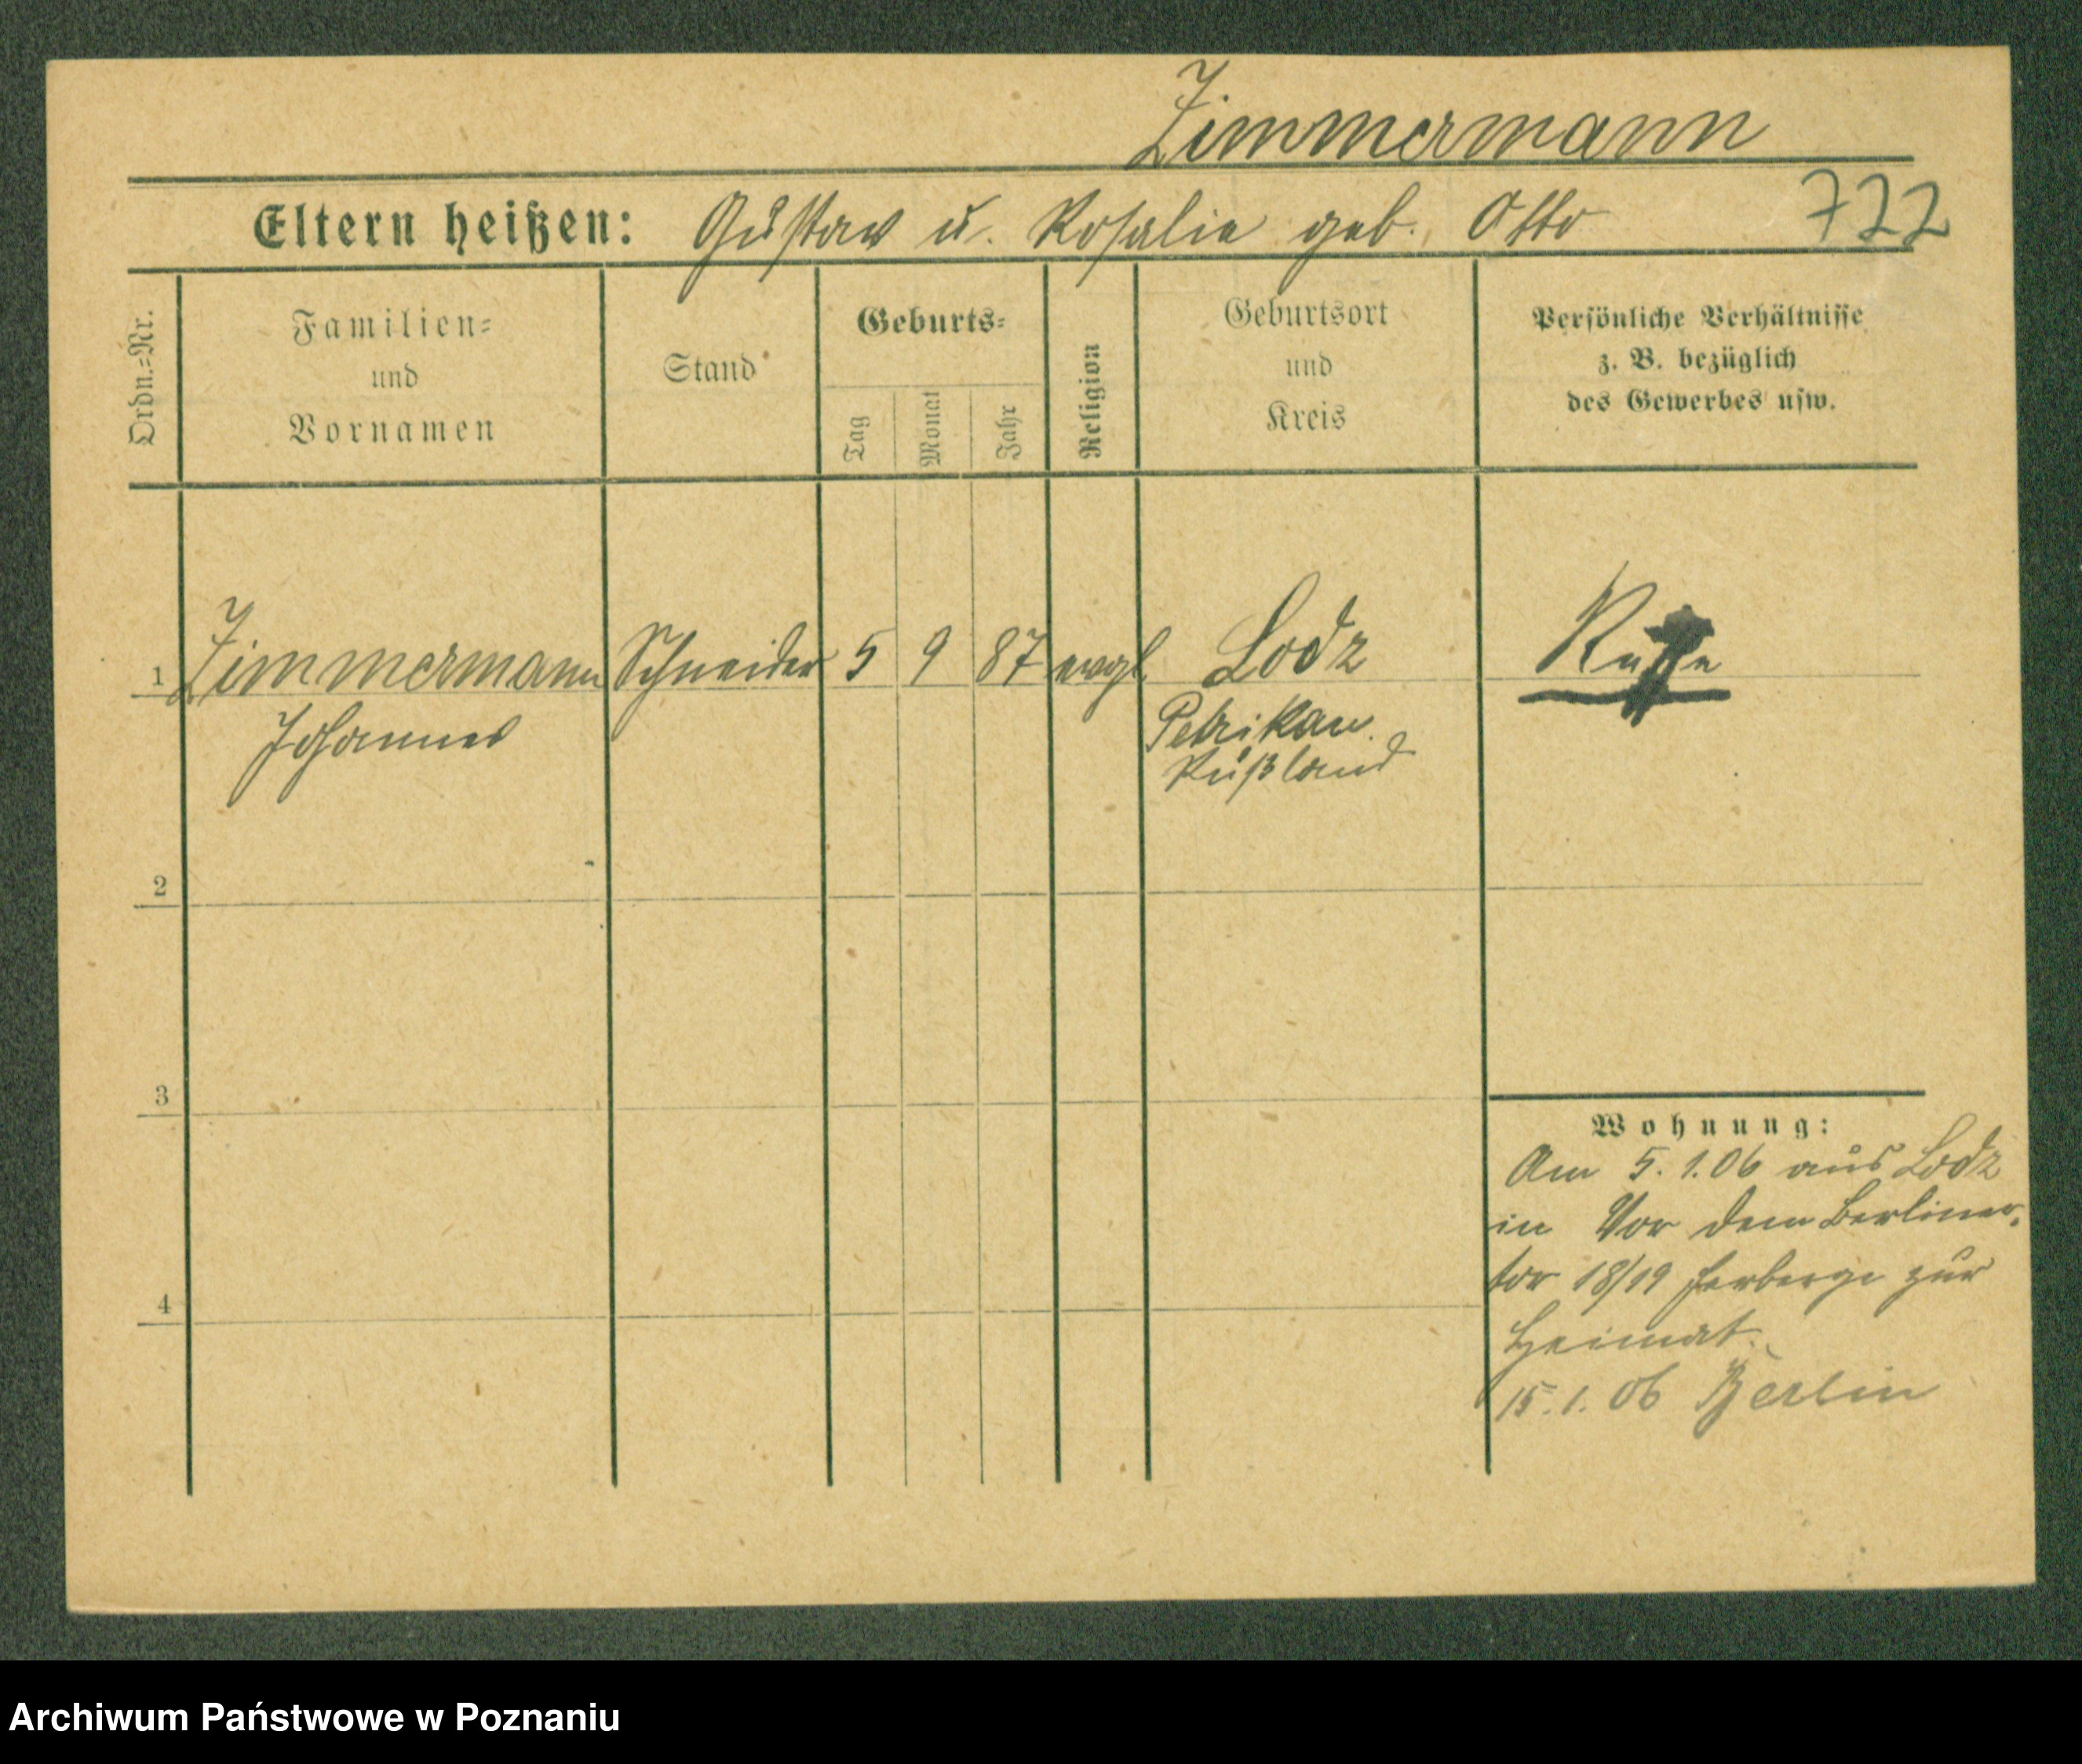 Zimmermann
Eltern heißen: Gustav u. Rosalie geb. Otto 722
Ordn.=Nr.
Familien=
und
Vornamen
Stand
Geburts=
Tag
Monat
Jahr
Religion
Geburtsort
und
Kreis
Persönliche Verhältnisse
z. B. bezüglich
des Gewerbes usw.
1 Zimmermann Schneider 5 9 87 evgl. Lodz Russe
Johannes
Petrikau
Rußland
2
3
4
Wohnung:
Am 5.1.06 aus Lodz
in Vor dem Berliner-
tor 18/19 Herberge zur
Heimat.
15.1.06 Berlin
Archiwum Państwowe w Poznaniu